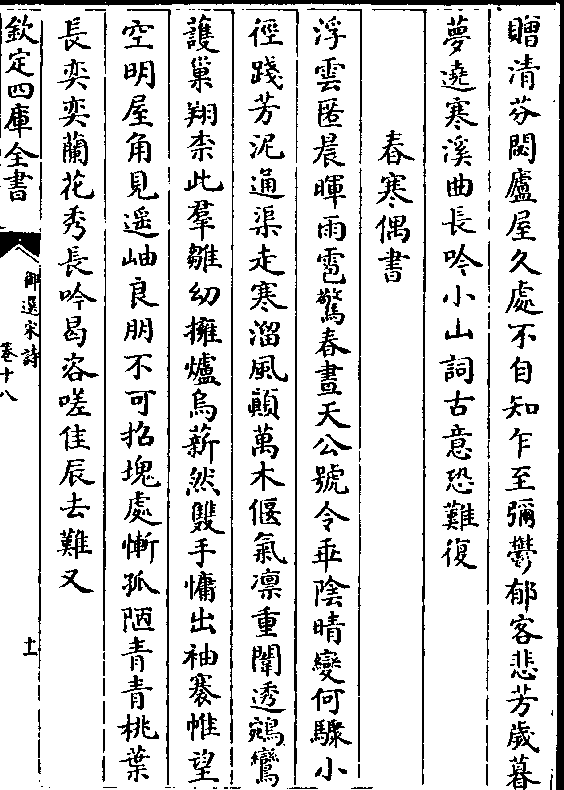 贈清芬閟廬屋久處不自知乍至彌鬱郁客悲芳歲暮
夢遶寒溪曲長吟小山詞古意恐難復
春寒偶書
浮雲匿晨暉雨雹驚春晝天公號令乖陰晴變何驟小
徑踐芳泥通渠走寒溜風顛萬木偃氣凛重闈透鵷鸞
護巢翔柰此羣雛幼擁爐烏薪然雙手慵出袖褰帷望
空明屋角見遥岫良朋不可招塊處慚孤陋青青桃葉
長奕奕蘭花秀長吟曷咨嗟佳辰去難又
欽定四庫全書
御選宋詩
卷十八
十一